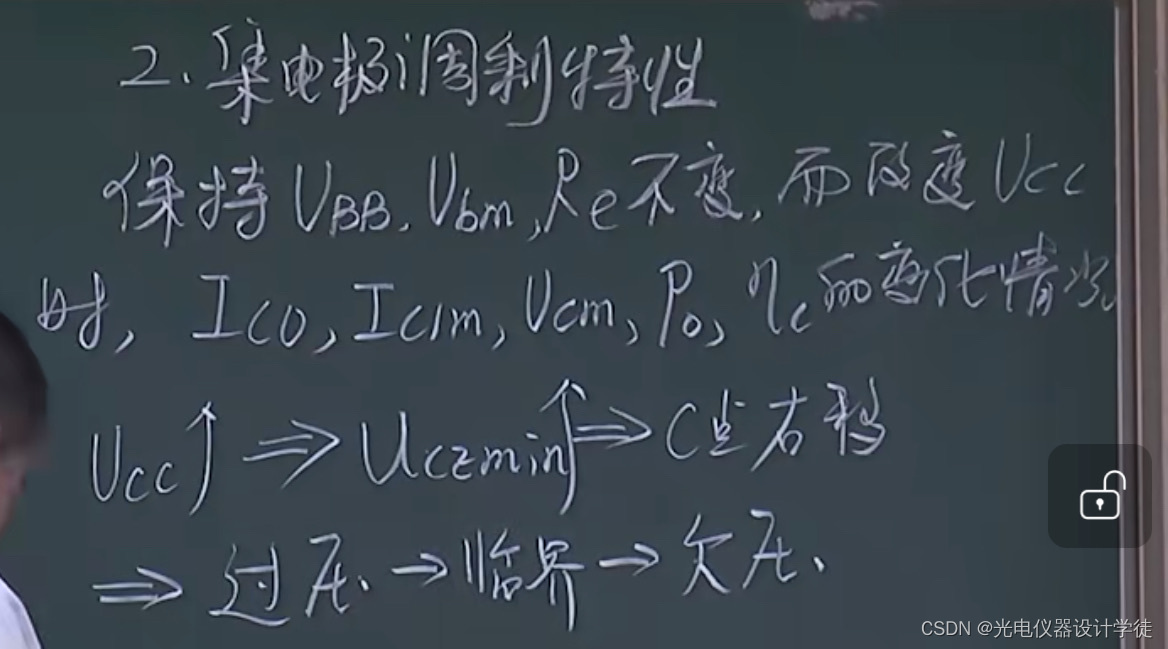 2. 集电极调制特性
保持 UBB, Ubm, Re不变, 而改变 Ucc
时, Ic0, Ic1m, Ucm, Po, ηc的变化情况
Ucc↑ ⇒ Uczmin↑ ⇒ C点右移
⇒ 过压. → 临界 → 欠压.
CSDN @光电仪器设计学徒